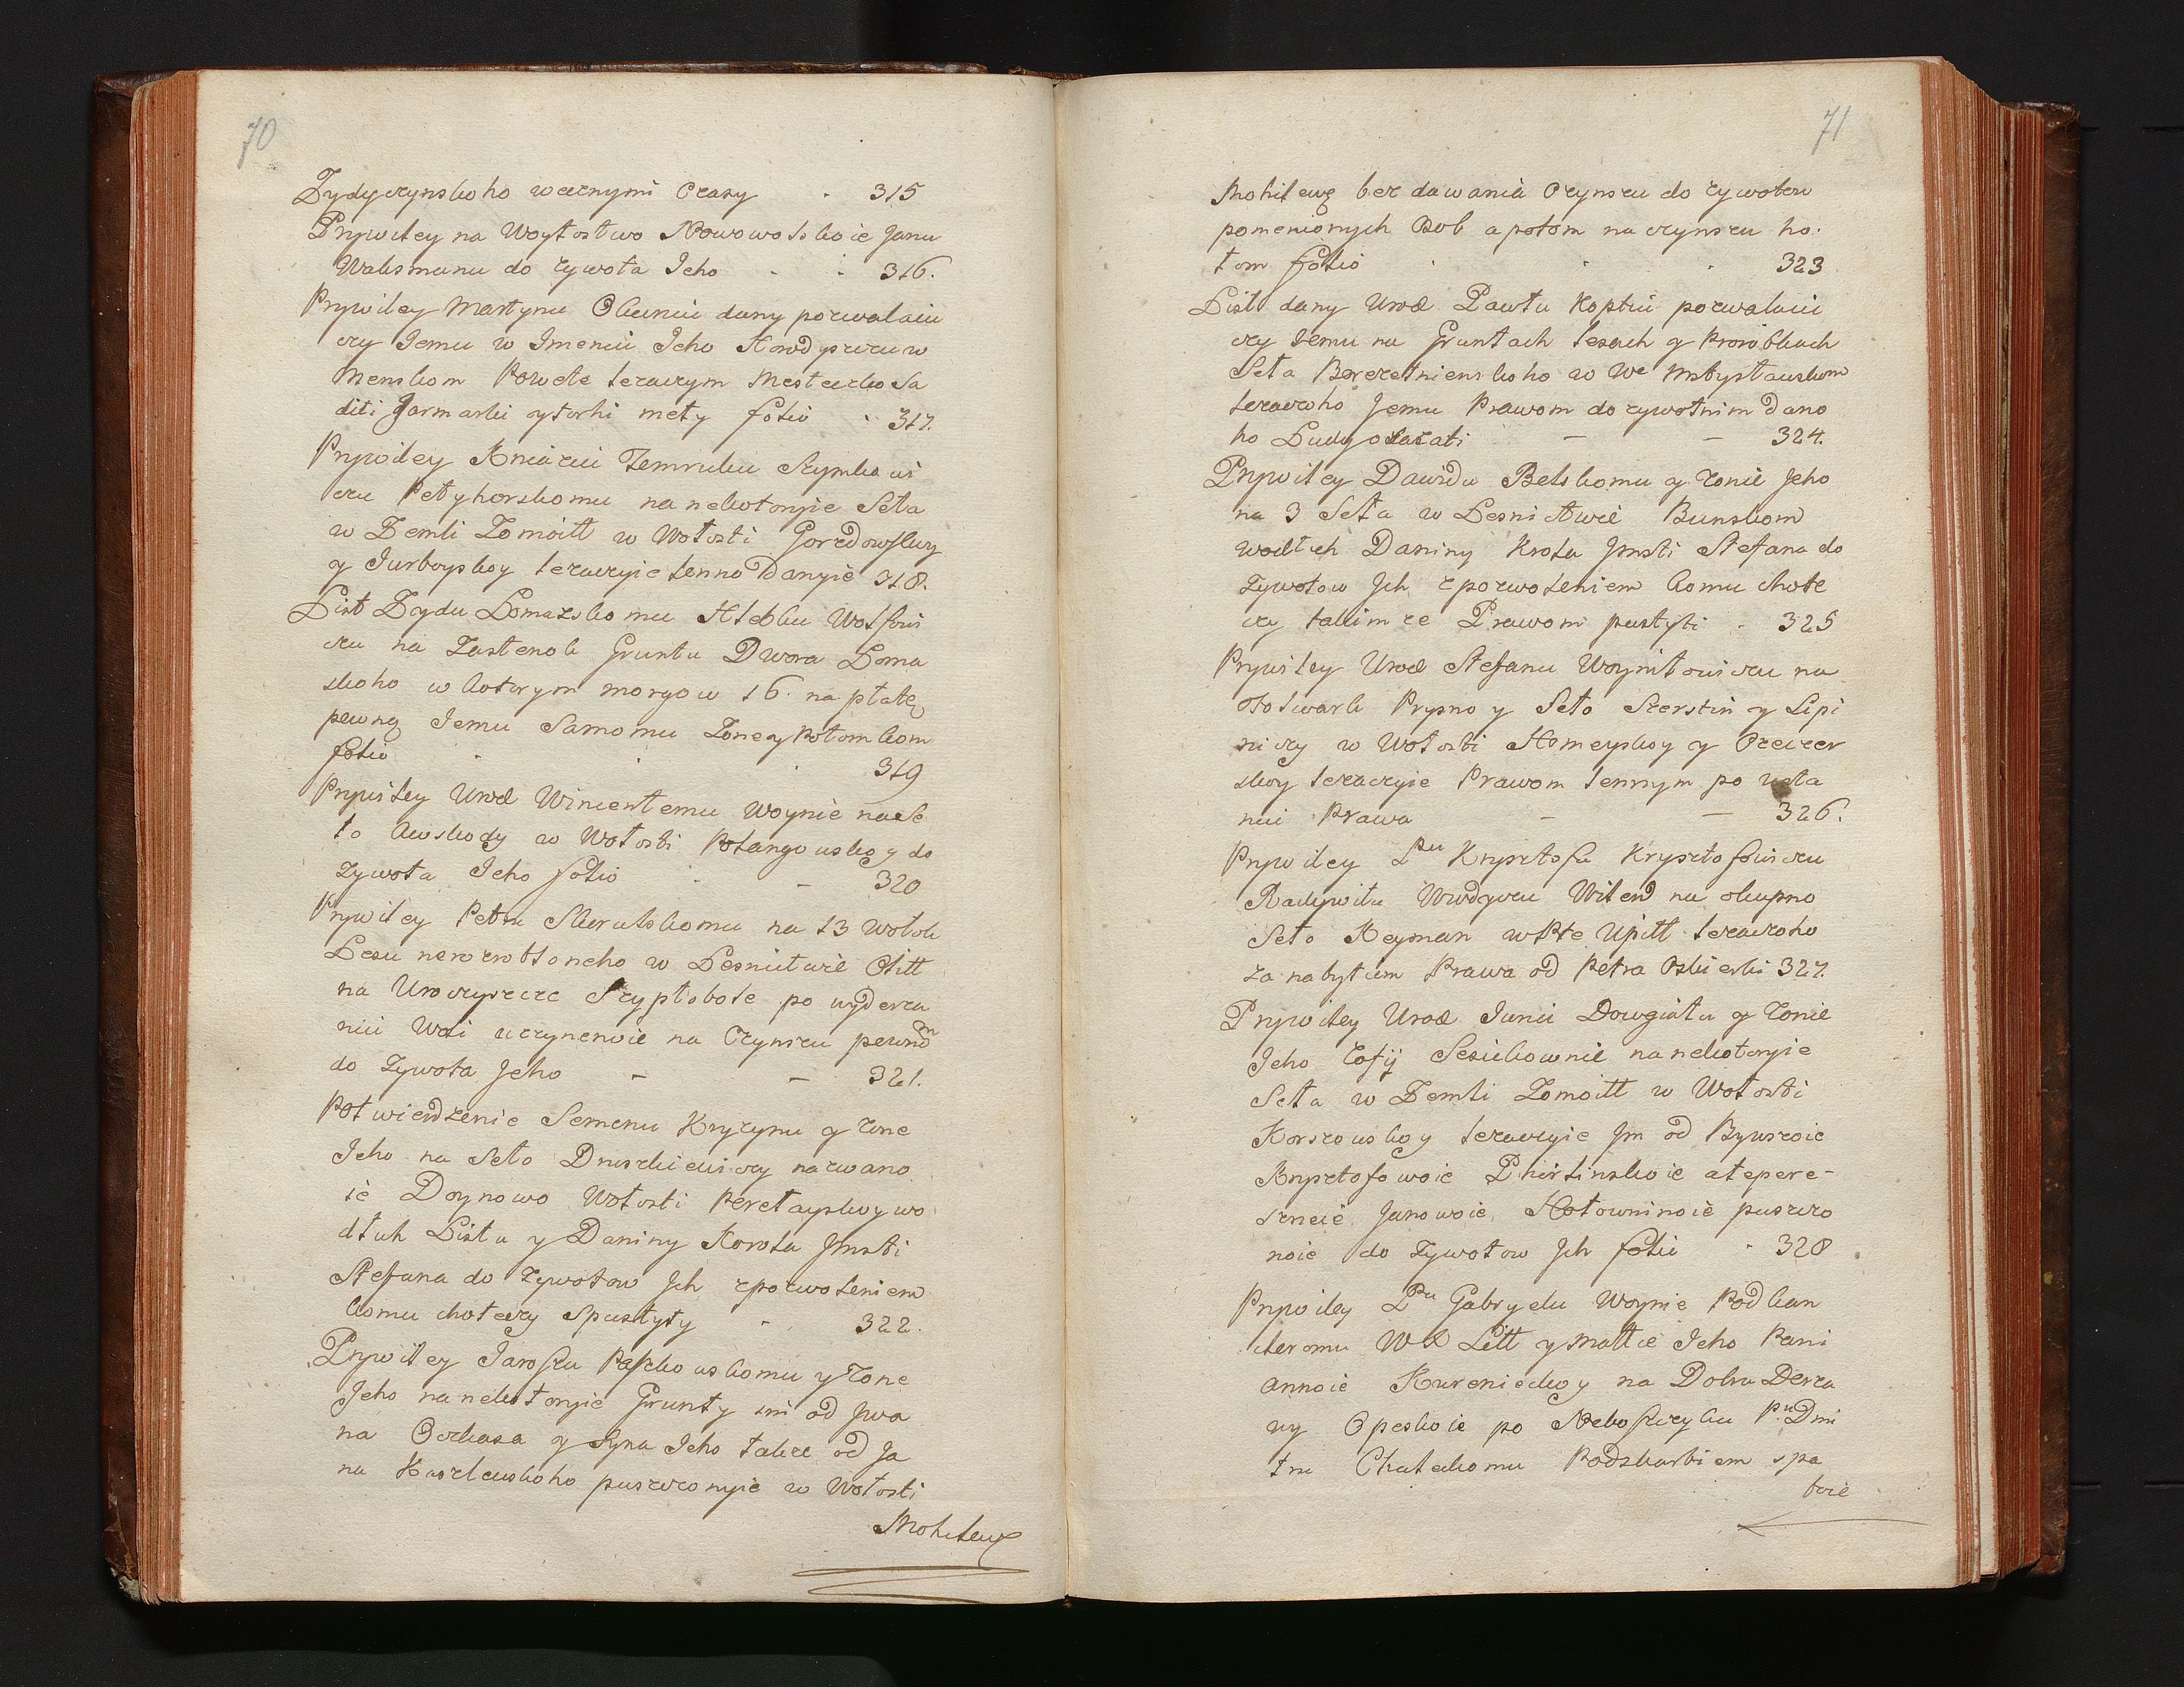 70
Zydyczynskoho wecznymi Czasy - 315
Prywiley na Woytostwo Nowowolskoie Janu
Walismanu do zywota Jeho - - 316.
Prywiley Martynu dany pozwalaiu
czy Jemu w Imeniu Jeho Howdyszczu w
Menskom Powete lezaczym Mesteczko Sa
diti Jarmarki y torhi mety folio - 317.
Prywiley Kniaziu Temruku Szymkowi
czu Petyhorskomu na nekotoryie Seła
w Zemli Zomoitt w Wołosti Gorzdowskuy
y Jurborskoy lezaczyie lenno Danyie 318.
List Zydu Łomazskomu Hlebku Wolfowi
czu na Zastenok Gruntu Dwora Łoma
skoho w kotorym morgow 16. na płatę
pewnę Jemu Samomu Zone y Potomkom
folio - - - 319
Prywiley Urod Wincentemu Woynie na Se
ło w Wołosti Polangowskoy do
zywota Jeho folio - - 320
Prywiley Petru na 13 Wołok
Lesu nerozrobłoneho w Lesnictwie Olitt
na Uroczyszcze po wyderza
niu Woli uczynenoie na Czynszu pewnom
do Zywota Jeho - - 321.
Potwierdzenie Semenu Kryczynu y zone
Jeho na Seło nazwano
ie Doynowo Wołosti Perełayskoy wo
dłuh Listu y Daniny Korola Jmsti
Stefana do Zywotow Jch zpozwoleniem
komu choteczy Spustyty - 322.
Prywiley Jaroszu Paszkowskomu y Zone
Jeho na nekotoryie Grunty im od Jwa
na y Syna Jeho takze od Ja
na puszczonyie w Wołosti
Mohilewy
71
Mohilewę bez dawania Czynszu do zywotow
pomenionych Osob a potom na czynszu ho:
tom folio - - - 323
List dany Urod Pawłu Koptiu pozwalaiu
czy Jemu na Gruntach lesach y Prorobkach
Seła Berezetnienskoho w We Mstysławskom
lezaczoho Jemu Prawom dozywotnim Dano
ho Ludy osazati - - 324.
Prywiley Dawidu Belskomu y zonie Jeho
na 3 Seła w Lesnictwie Bunskom
wodłuh Daniny Krola Jmsti Stefana do
Zywotow Jch zpozwoleniem komu chote
czy takim ze Prawom pustyti - 325
Prywiley Urod Stefanu Woyniłowiczu na
Folwark Prysno y Seło Szerstin y Lipi
niczy w Wołosti Homeyskoy y Czeczer
skoy lezaczyie Prawom lennym po
niu Prawa - - 326.
Prywiley Pu Krysztofu Krysztofowiczu
Radywilu Wwdyczu Wilend na okupno
Seło Keyman w Pte Upitt lezaczoho
za nabytiem Prawa od Petra 327.
Prywiley Urod Juriu Dowgiału y Zonie
Jeho Zofij na nekotoryie
Seła w Zemli Zomoitt w Wołosti
Korszowskoy lezaczyie Jm od Bywszoie
Krysztofowoie a tepere-
szneie Janowoie, puszczo
noie do Zywotow Jch folio - 328
Prywiley Pu Gabryelu Woynie Podkan
cleromu W X Litt y Małłie Jeho Pani
Annoie na Dobra Derza
wy Opeskoie po Neboszczyku Pu Dmi
tru Chaleckomu Podskarbiem spa
łoie